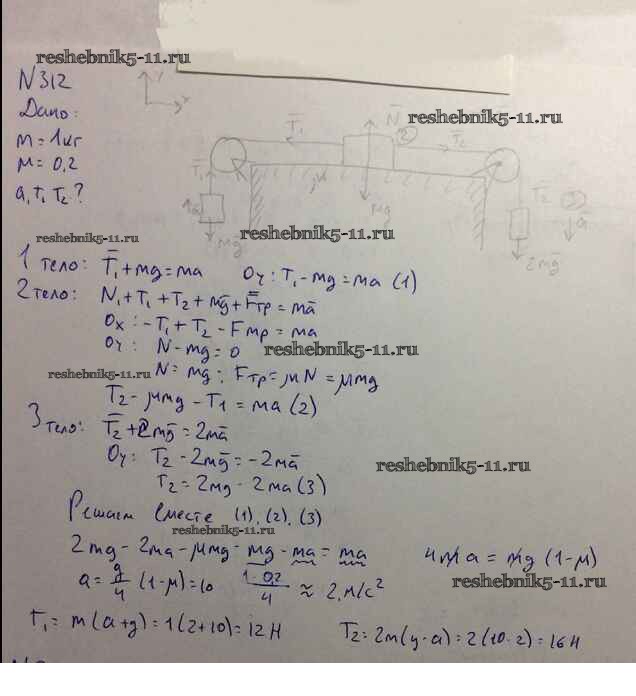 reshebnik5-11.ru
N312
Дано:
m = 1кг
μ = 0,2
a, T₁ T₂ ?
y
x
T̄₁
N̄
reshebnik5-11.ru
②
T̄₂
T̄₁
μ
mg
mg
T₂
③
ā
2mḡ
reshebnik5-11.ru
1 тело: T̄₁ + mg = ma Oy: T₁ - mg = ma (1)
2 тело: N₁ + T₁ + T₂ + mg + F̄тр = mā
reshebnik5-11.ru
Ox: -T₁ + T₂ - Fтр = ma
Oy: N - mg = 0
reshebnik5-11.ru
reshebnik5-11.ru
N = mg; Fтр = μN = μmg
T₂ - μmg - T₁ = ma (2)
3 тело: T̄₂ + 2mḡ = 2mā
Oy: T₂ - 2mḡ = -2mā
reshebnik5-11.ru
T₂ = 2mg - 2ma (3)
Решаем вместе (1), (2), (3)
reshebnik5-11.ru
2mg - 2ma - μmg - mg - ma = ma 4ma = mg (1-μ)
a = g/4 (1-μ) = 10 1-0,2/4 ≈ 2 м/с²
reshebnik5-11.ru
T₁ = m(a+g) = 1(2+10) = 12 H T₂ = 2m(g-a) = 2(10-2) = 16 H